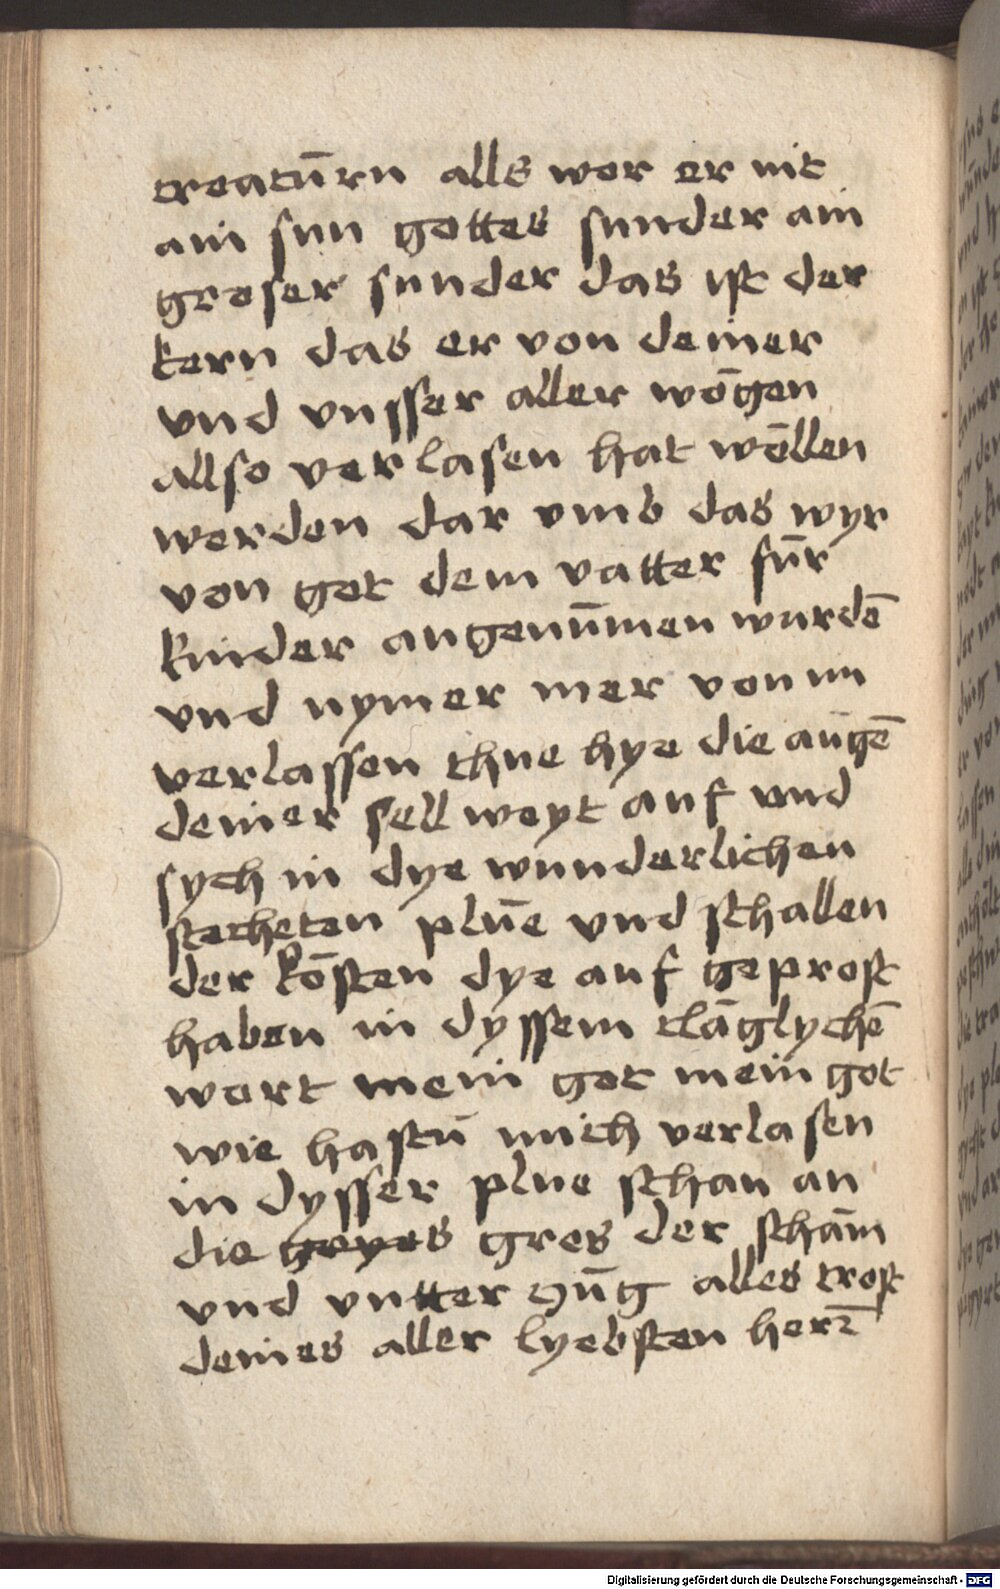 creatūrn alls wer er nit
ain sun gottes sunder ain
groser sunder das ist der
kern das er von deiner
vnd vnsser aller wōgen
allso verlasen hat wōllen
werden dar vmb das wyr
von got dem vatter fūr
kinder angenūmen wurdē
vnd nymer mer von im
verlassen thue hye die aūgē
deiner sell weyt auf vnd
sych in dye wunderlichen
stecheten plūe vnd schallen
der kōsten dye auf geprost
haben in dyssem clāglychē
wort mein got mein got
wie hastū mich verlasen
in dysser plue schau an
die greyes gres der schām
vnd vntter gūg alles trost
deines aller lyebsten herꝛ̄
Digitalisierung gefördert durch die Deutsche Forschungsgemeinschaft - DFG